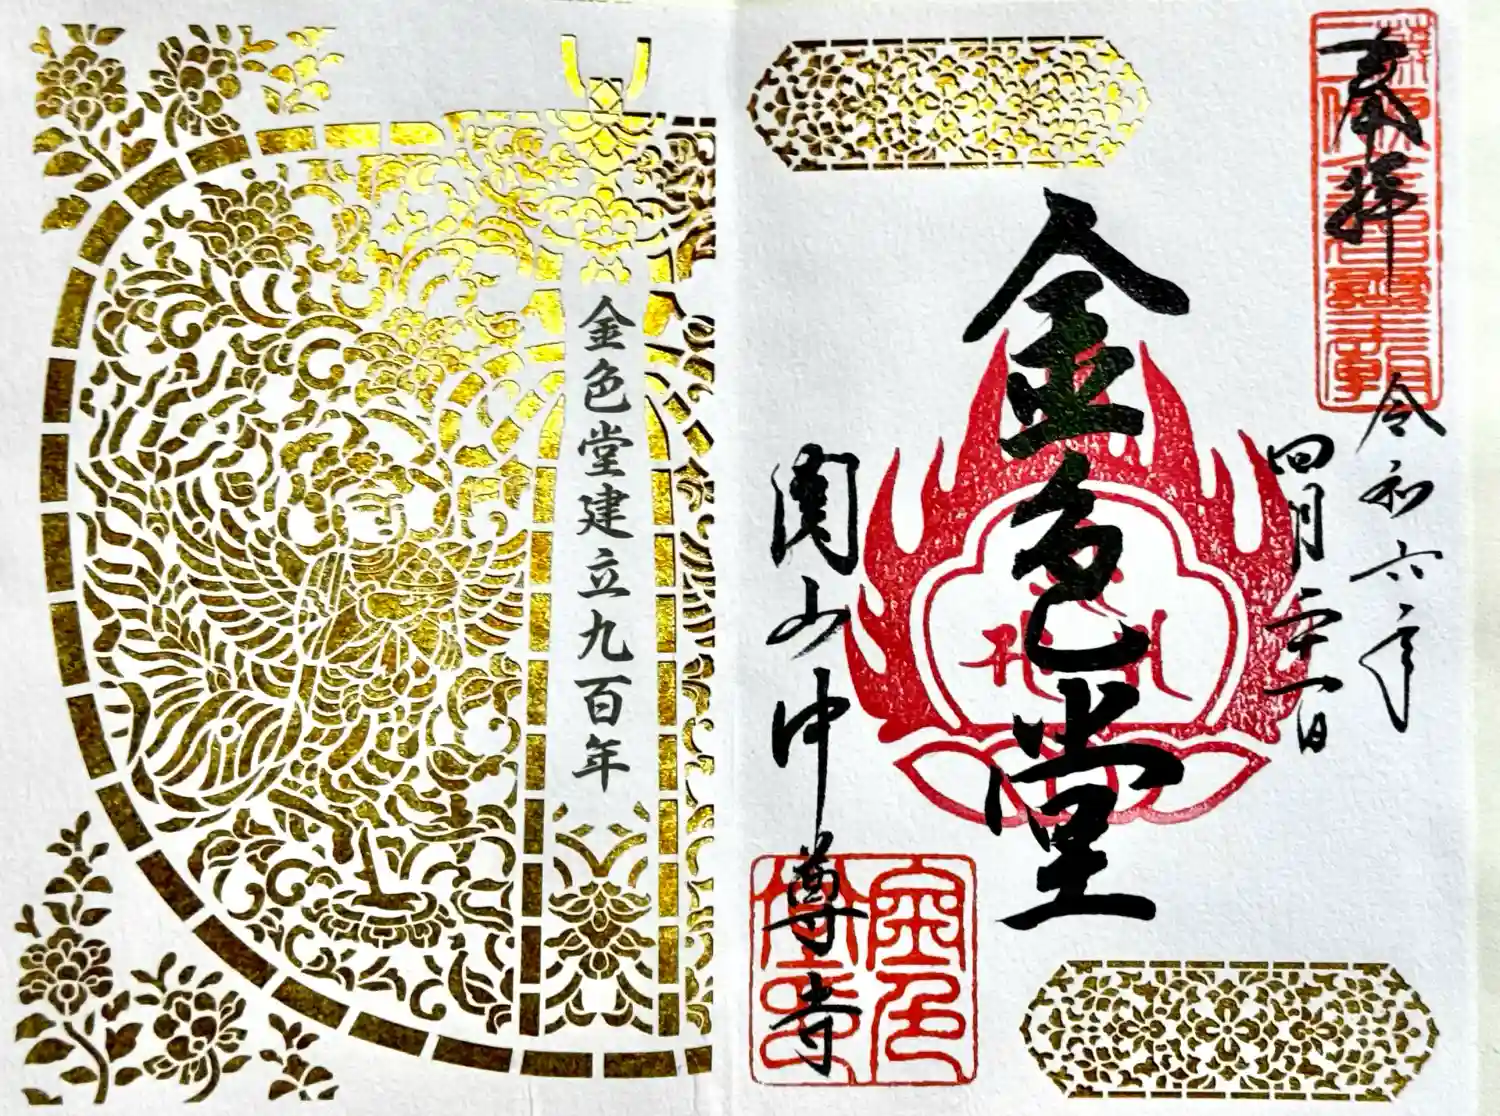 奉拝
令和六年
四月二十一日
金色堂
關山中尊寺
金色堂建立九百年
金色
堂印